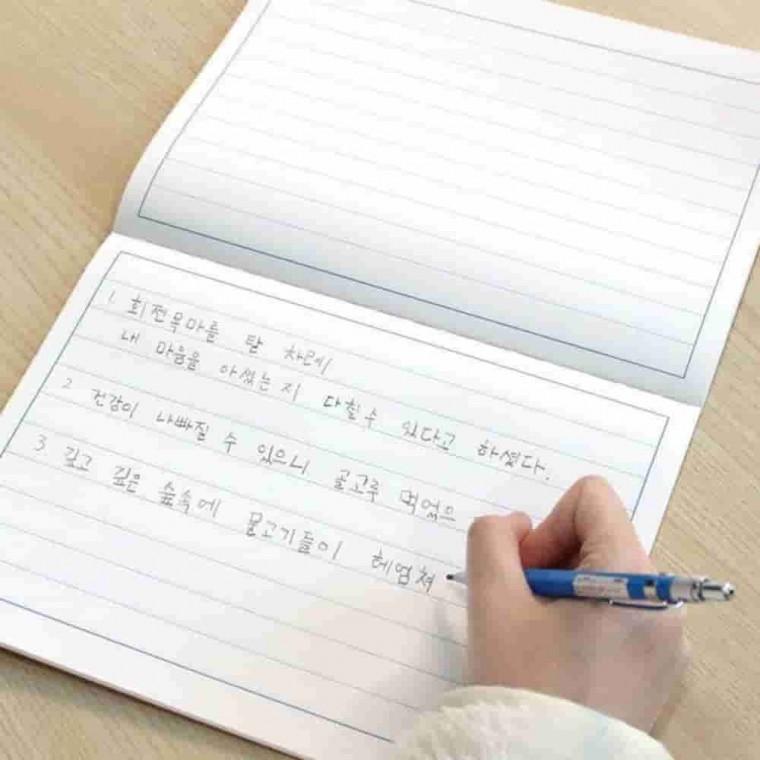 1. 회전목마를 탈 차례
내 마음을 아셨는지 다칠수 있다고 하셨다.
2 건강이 나빠질 수 있으니 골고루 먹었으
3 깊고 깊은 숲속에 물고기들이 헤엄쳐